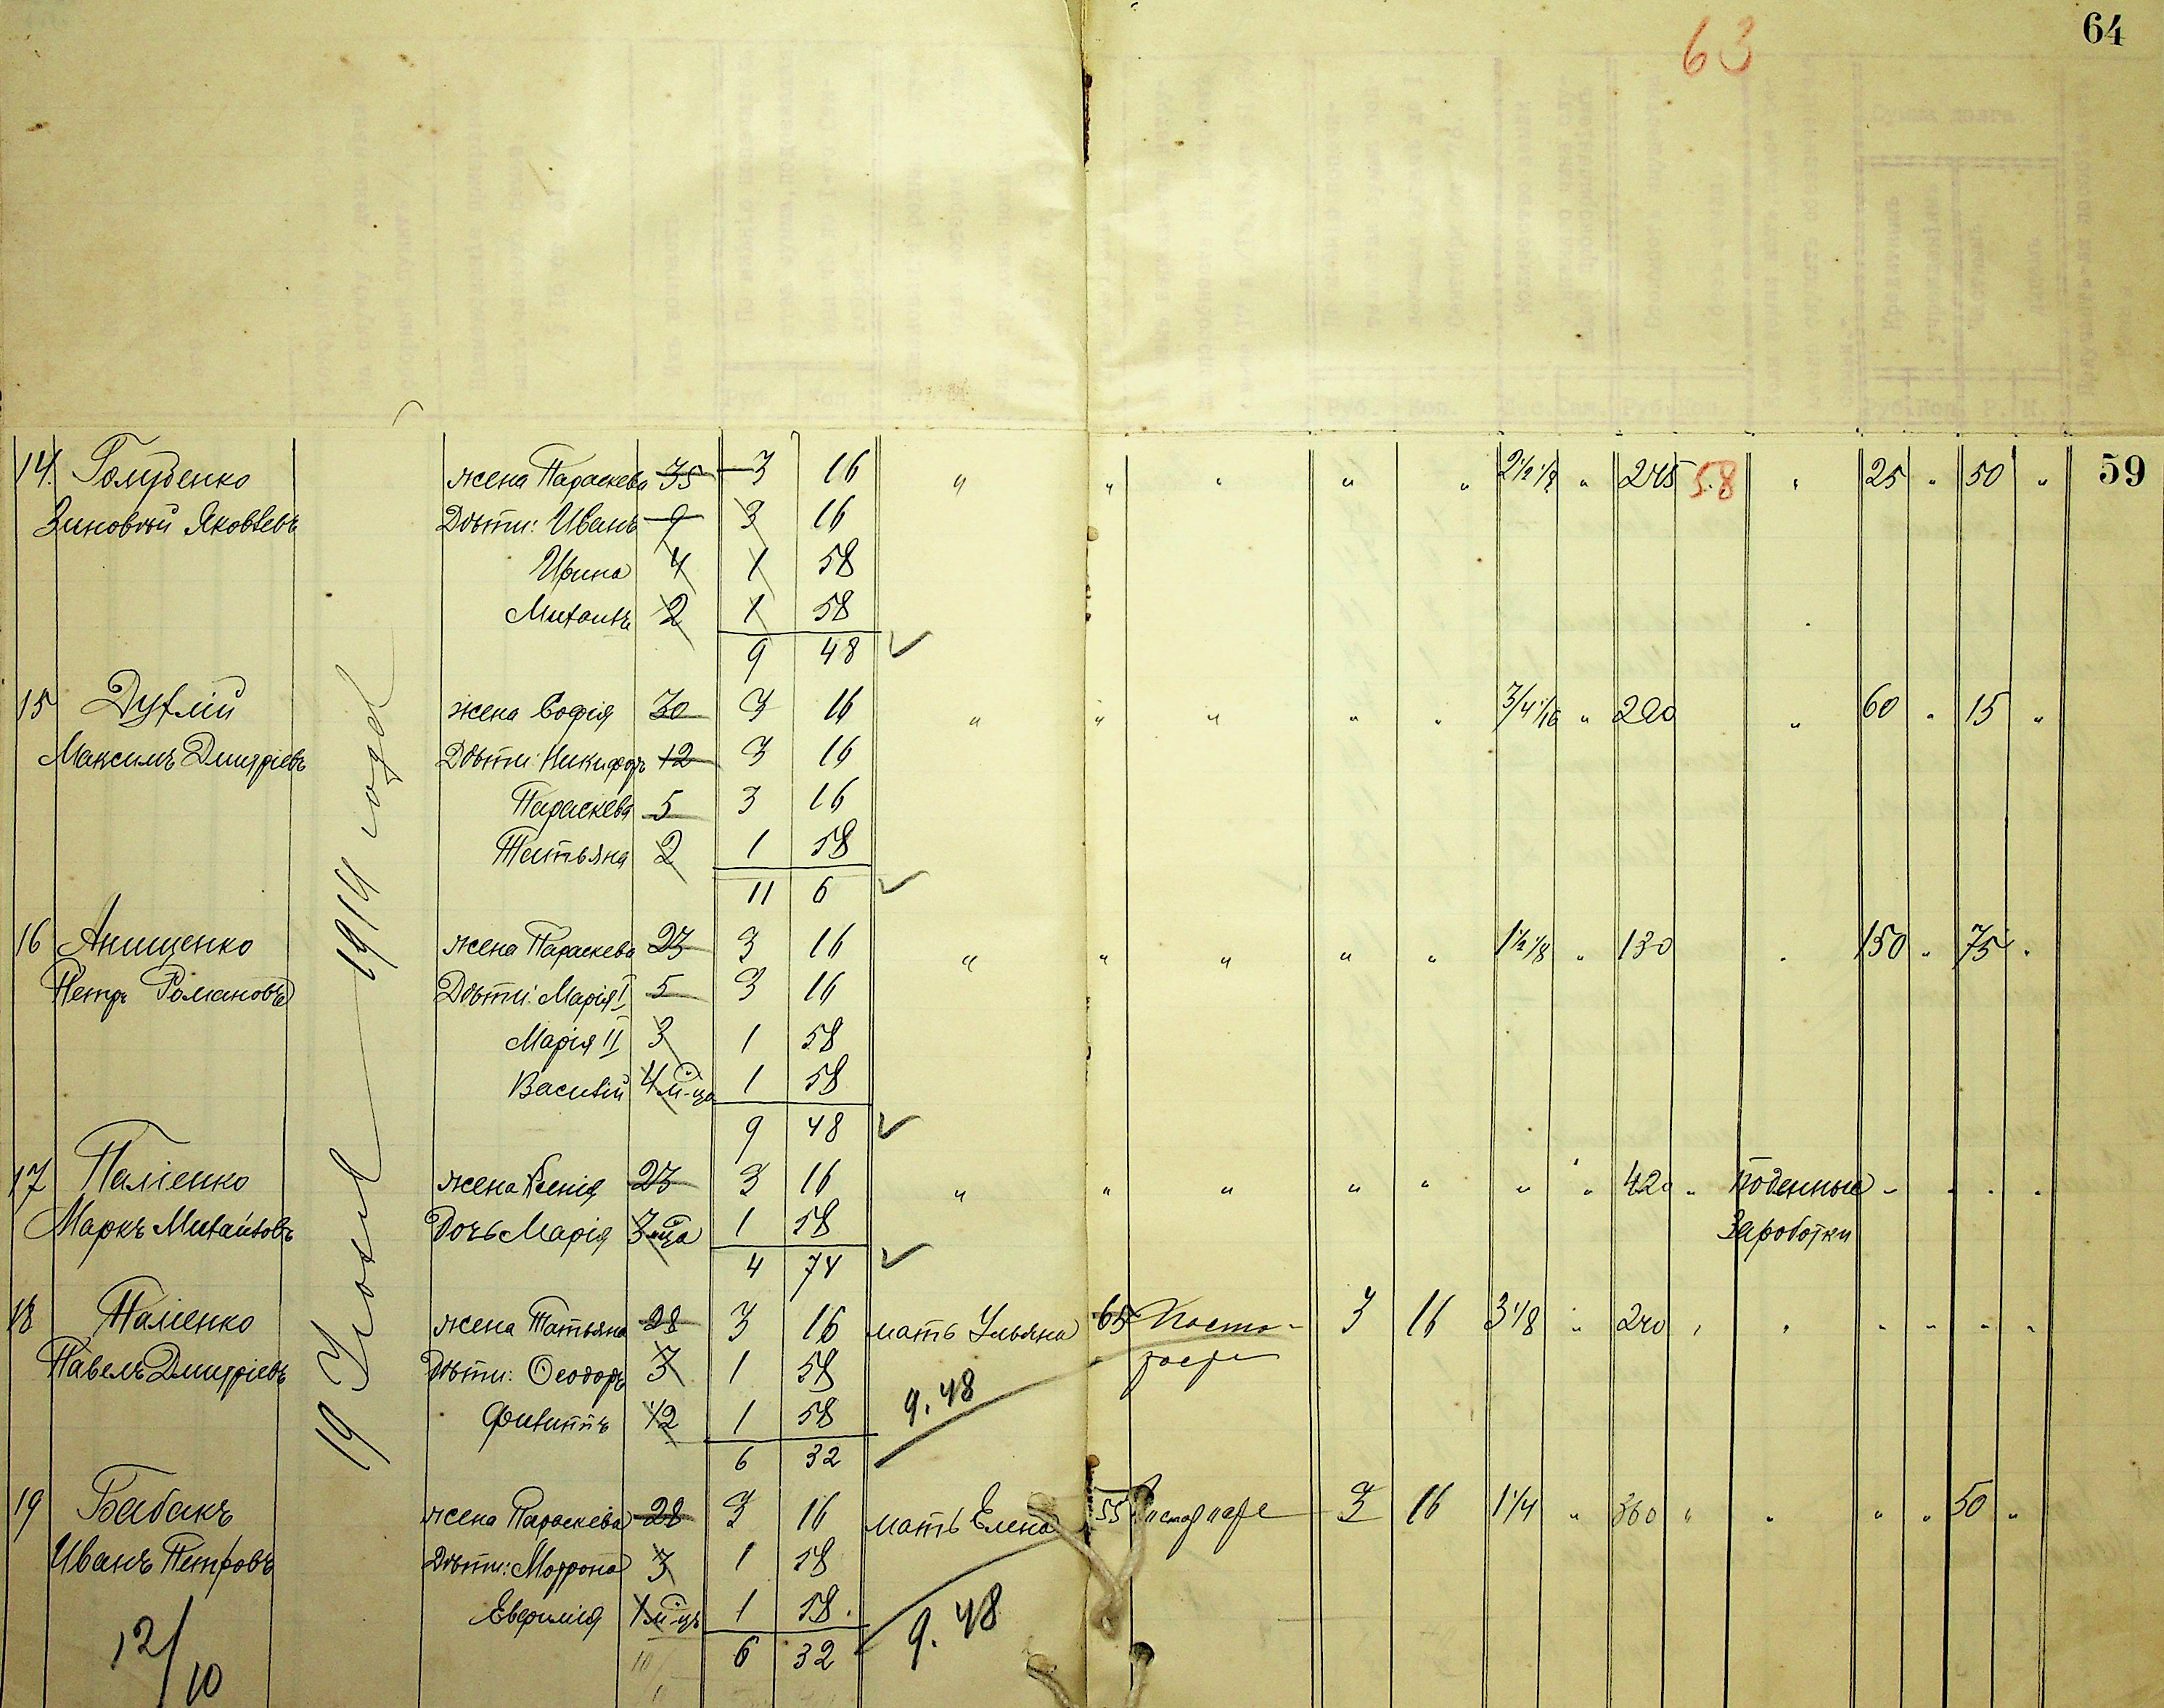 63
64
14. Голубенко жена Параскева 35 3 16 " " " " " 2 1/2 1/8 " 245 5.8 " 25 " 50 " 59
Зиновій Яковлевъ Дѣти: Иванъ 9 3 16
Ирина 4 1 58
Михаилъ 2 1 58
9 48
15 Дублій жена Софія 30 3 16 " " " " " 3/4 1/16 " 220 " 60 " 15 "
Максимъ Дмитріевъ Дѣти: Никифоръ 12 3 16
Параскева 5 3 16
Татьяна 2 1 58
11 6
16 Анищенко жена Параскева 23 3 16 " " " " " 1 1/2 1/8 " 130 " 150 " 75 "
Петръ Романовъ Дѣти: Марія I 5 3 16
Марія II 3 1 58
Василій 4 м-ца 1 58
9 48
17 Паліенко жена Ксенія 23 3 16 " " " " " " " 420 " Поденные " " " "
Маркъ Михайловъ Дочь Марія 3 м-ца 1 58 Заработки
4 74
18 Паліенко жена Татьяна 28 3 16 мать Ульяна 65 3 16 3 1/8 " 240 " " " " " "
Павелъ Дмитріевъ Дѣти: Ѳеодоръ 3 1 58
Филиппъ 1/2 1 58 9.48
6 32
19 Бабакъ жена Параскева 28 3 16 мать Елена 55 3 16 1 1/4 " 360 " " " " 50 "
Иванъ Петровъ Дѣти: Мотрона 3 1 58
Евфимія 1 м-цъ 1 58. 9.48
6 32
12/10
19 Іюля 1914 года